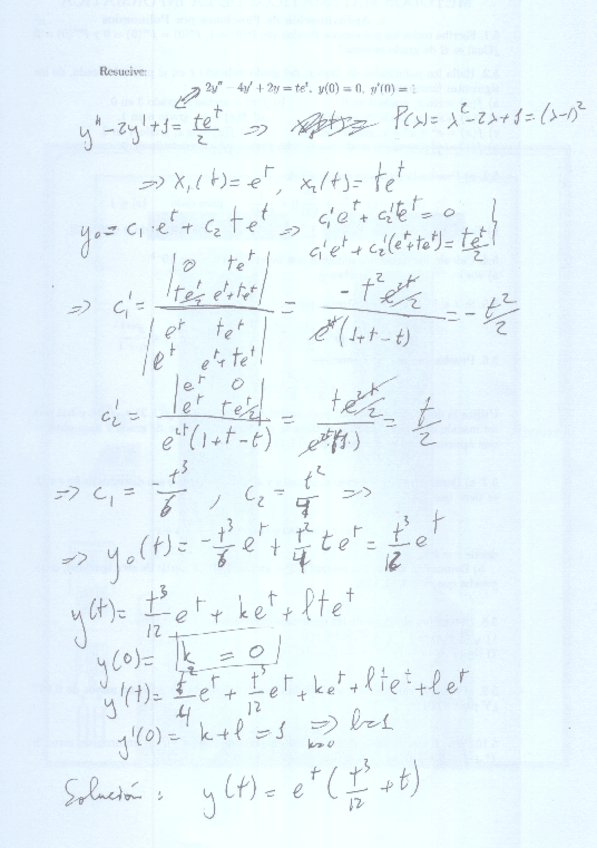 Resuelve:
2y'' − 4y' + 2y = te^t, y(0) = 0, y'(0) = 1
y'' - 2y' + 1 = te^t/2 => P(λ) = λ^2 - 2λ + 1 = (λ-1)^2
=> x_1(t) = e^t, x_2(t) = te^t
y_0 = c_1 · e^t + c_2 te^t => c_1' e^t + c_2' te^t = 0
c_1' e^t + c_2' (e^t + te^t) = te^t/2
=> c_1' = |0 te^t; te^t/2 e^t + te^t| / |e^t te^t; e^t e^t + te^t| = -t^2 e^{2t}/2 / e^{2t}(1+t-t) = -t^2/2
c_2' = |e^t 0; e^t te^t/2| / e^{2t}(1+t-t) = te^{2t}/2 / e^{2t}(1) = t/2
=> c_1 = -t^3/6, c_2 = t^2/4 =>
=> y_0(t) = -t^3/6 e^t + t^2/4 te^t = t^3/12 e^t
y(t) = t^3/12 e^t + ke^t + lte^t
y(0) = k = 0
y'(t) = t^2/4 e^t + t^3/12 e^t + ke^t + lte^t + le^t
y'(0) = k + l = 1 => k=0 l=1
Solución: y(t) = e^t (t^3/12 + t)